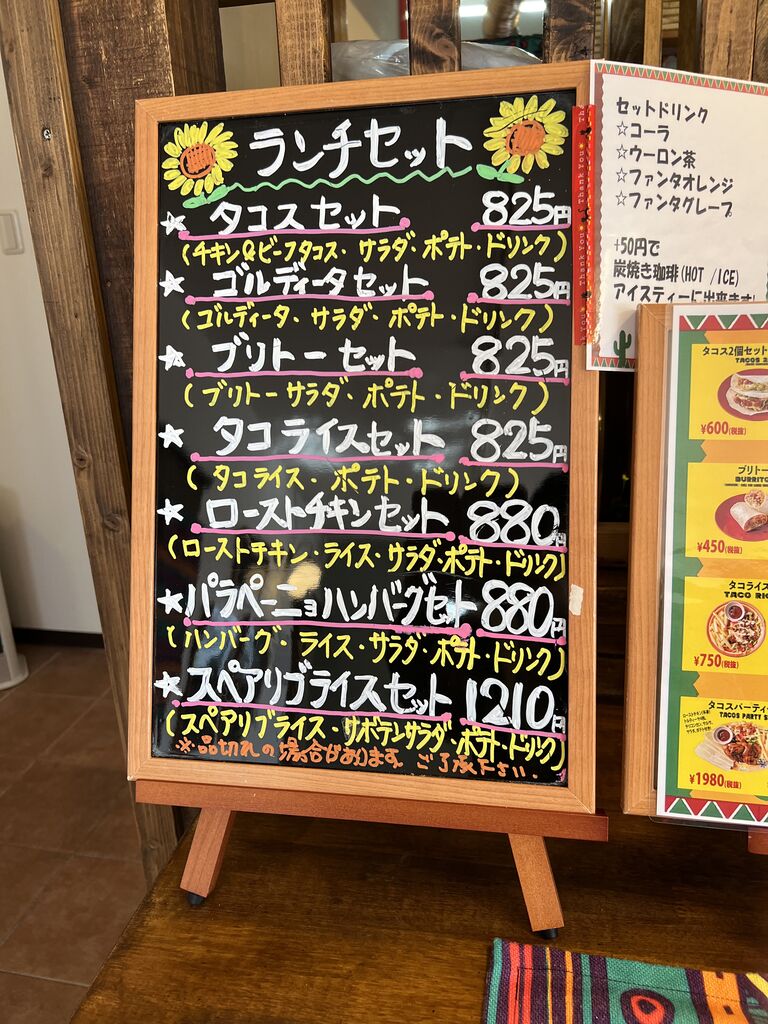 ランチセット
☆タコスセット 825円
(チキン&ビーフタコス・サラダ・ポテト・ドリンク)
☆ゴルディータセット 825円
(ゴルディータ・サラダ・ポテト・ドリンク)
☆ブリトーセット 825円
(ブリトーサラダ・ポテト・ドリンク)
☆タコライスセット 825円
(タコライス・ポテト・ドリンク)
☆ローストチキンセット 880円
(ローストチキン・ライス・サラダ・ポテト・ドリンク)
☆パラペーニョハンバーグセット 880円
(ハンバーグ・ライス・サラダ・ポテト・ドリンク)
☆スペアリブライスセット 1210円
(スペアリブライス・サボテンサラダ・ポテト・ドリンク)
※品切れの場合があります。ご了承下さい。
Thank You
Thank You
セットドリンク
☆コーラ
☆ウーロン茶
☆ファンタオレンジ
☆ファンタグレープ
+50円で
炭焼き珈琲(HOT /ICE)
アイスティーに出来ます!
タコス2個セット
TACOS 2
¥600(税抜)
ブリトー
BURRITO
¥450(税抜)
タコライス
TACO RIC
¥750(税抜)
タコスパーティー
TACOS PARTY S
¥1980(税抜)